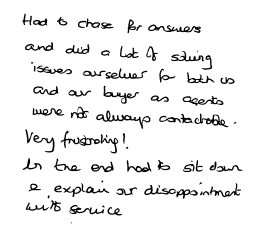 Had to chase for answers
and did a lot of solving
issues ourselves for both us
and our buyer as agents
were not always contactable.
Very frustrating!
In the end had to sit down
& explain our disappointment
with service